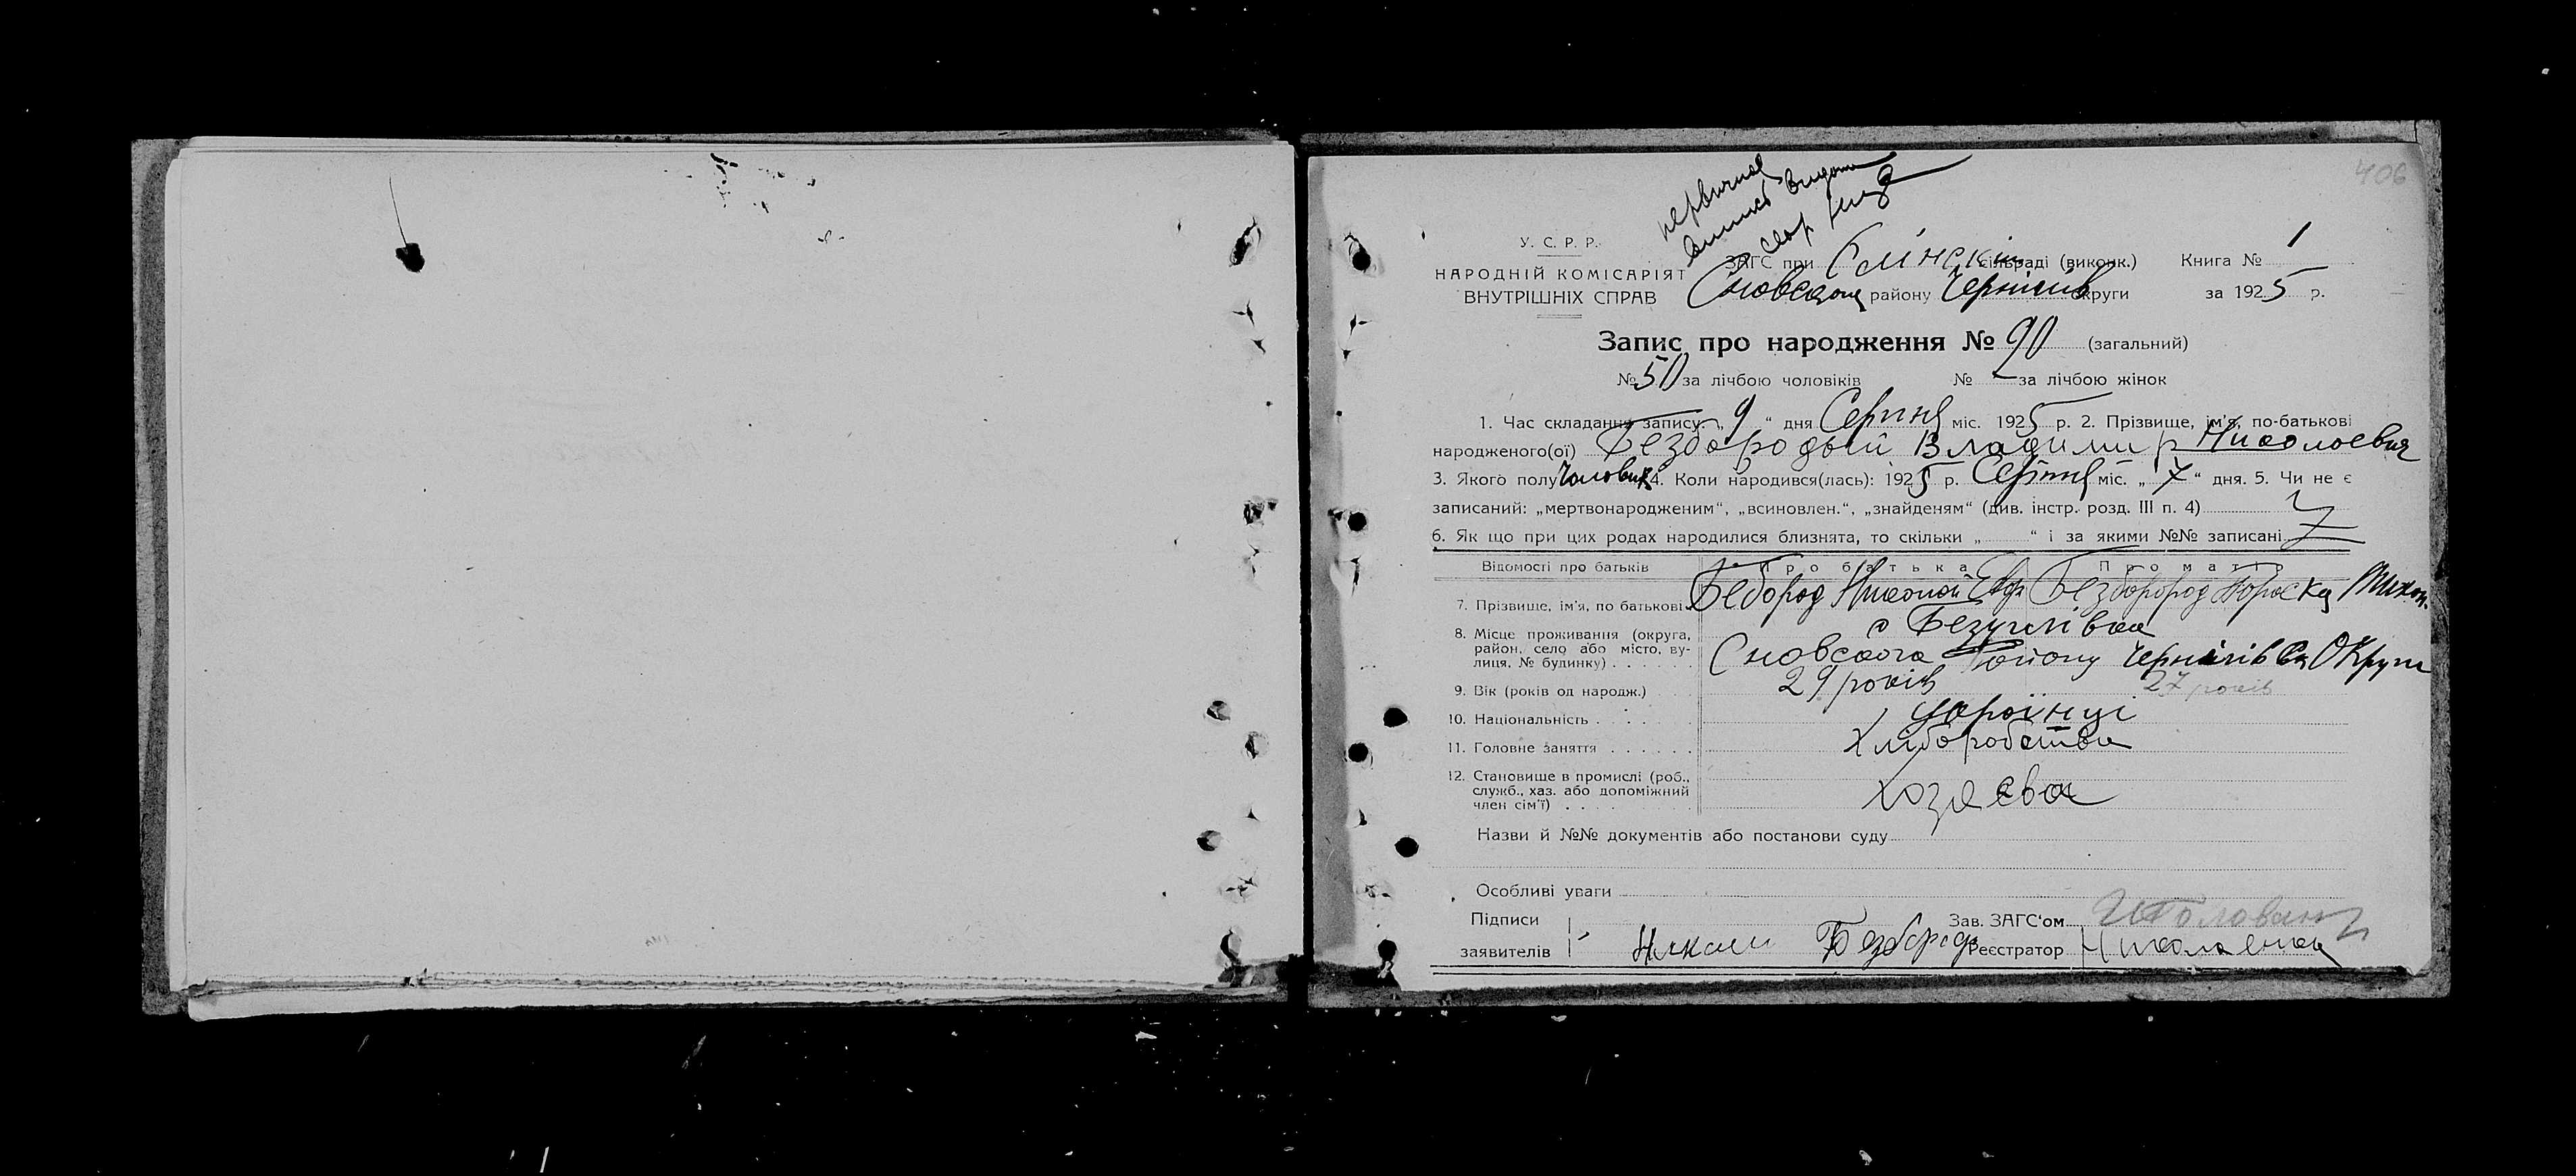 406
первичное
У. С. Р. Р.
НАРОДНІЙ КОМІСАРІЯТ
ВНУТРІШНІХ СПРАВ
ЗАГС при сільраді (виконк.) Книга № 1
Сновского району Чернігів округи за 1925 р.
Запис про народження № 90 (загальний)
№ 50 за лічбою чоловіків № за лічбою жінок
1. Час складання запису: „9“ дня Серпня міс. 1925 р. 2. Прізвище, ім'я, по-батькові
народженого(ої) Безбородый Владимир Николоевич
3. Якого полу Чоловік 4. Коли народився(лась): 1925 р. Серпня міс. „7“ дня. 5. Чи не є
записаний: „мертвонародженим“, „всиновлен.“, „знайденям“ (див. інстр. розд. III п. 4)
6. Як що при цих родах народилися близнята, то скільки „ “ і за якими №№ записані
Відомості про батьків Про батька Про матір
7. Прізвище, ім'я, по батькові Бебород Николай Безбород
8. Місце проживання (округа, район, село або місто, вулиця, № будинку)
Сновского Району Чернігівск Округи
9. Вік (років од народж.) 29 років 27 років
10. Національність украінці
11. Головне заняття Хліборобства
12. Становище в промислі (роб., служб., хаз. або допоміжний член сім'ї) хозяева
Назви й №№ документів або постанови суду
Особливі уваги
Підписи Зав. ЗАГС'ом
заявителів Безбород Реєстратор Николаенко